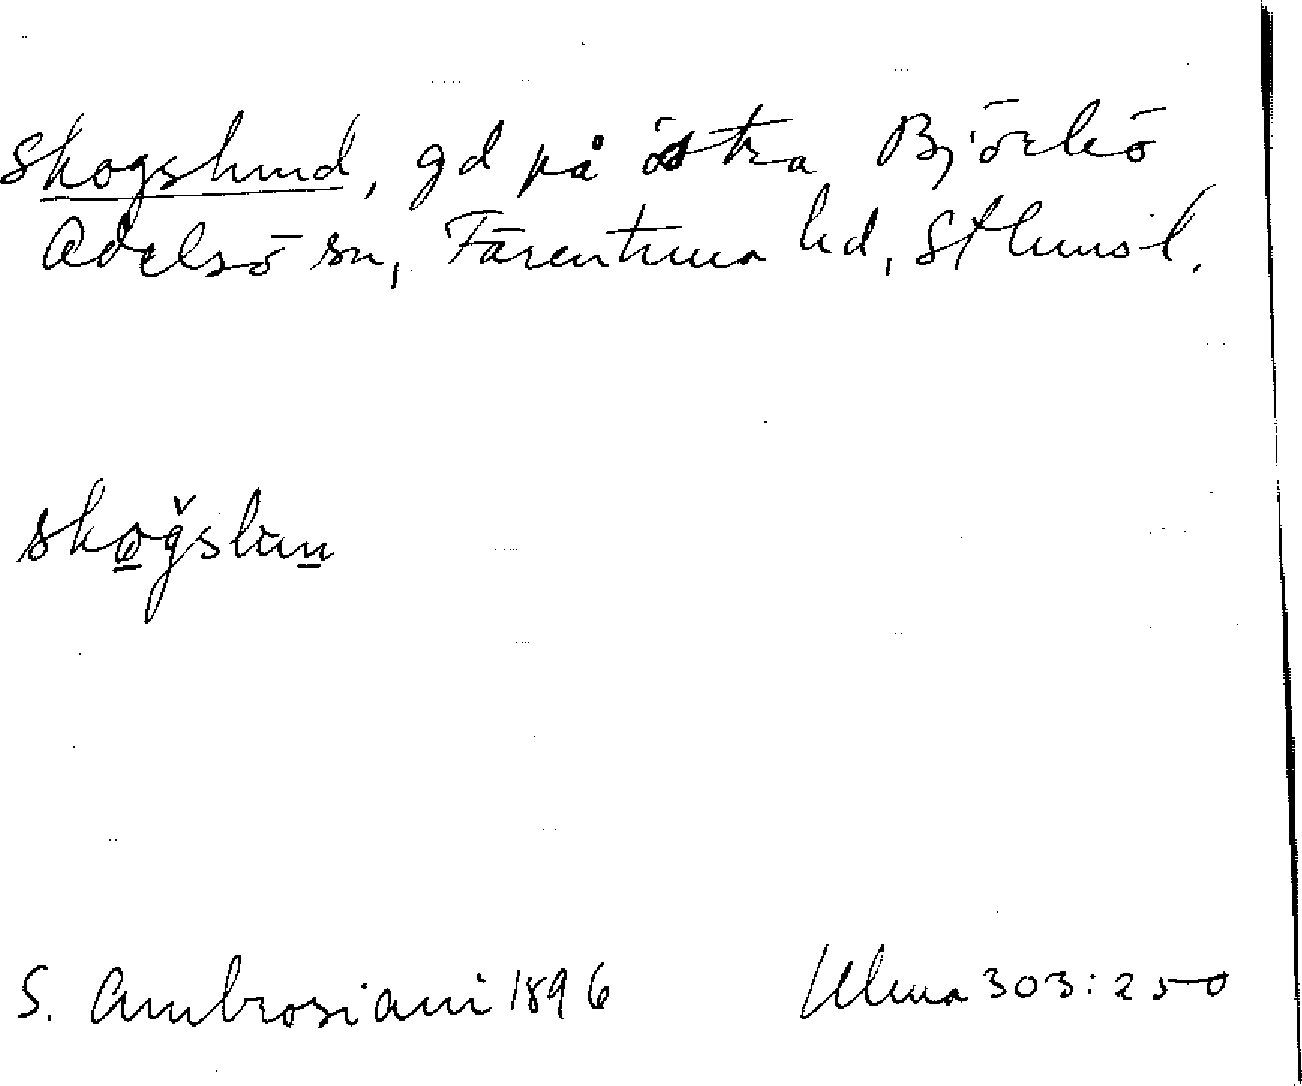 Skogslund, gd på östra Björkö
Adelsö sn, Färentuna hd, Sthmsl.
skoǧslun
S. Ambrosiani 1896
Ulma 303:250